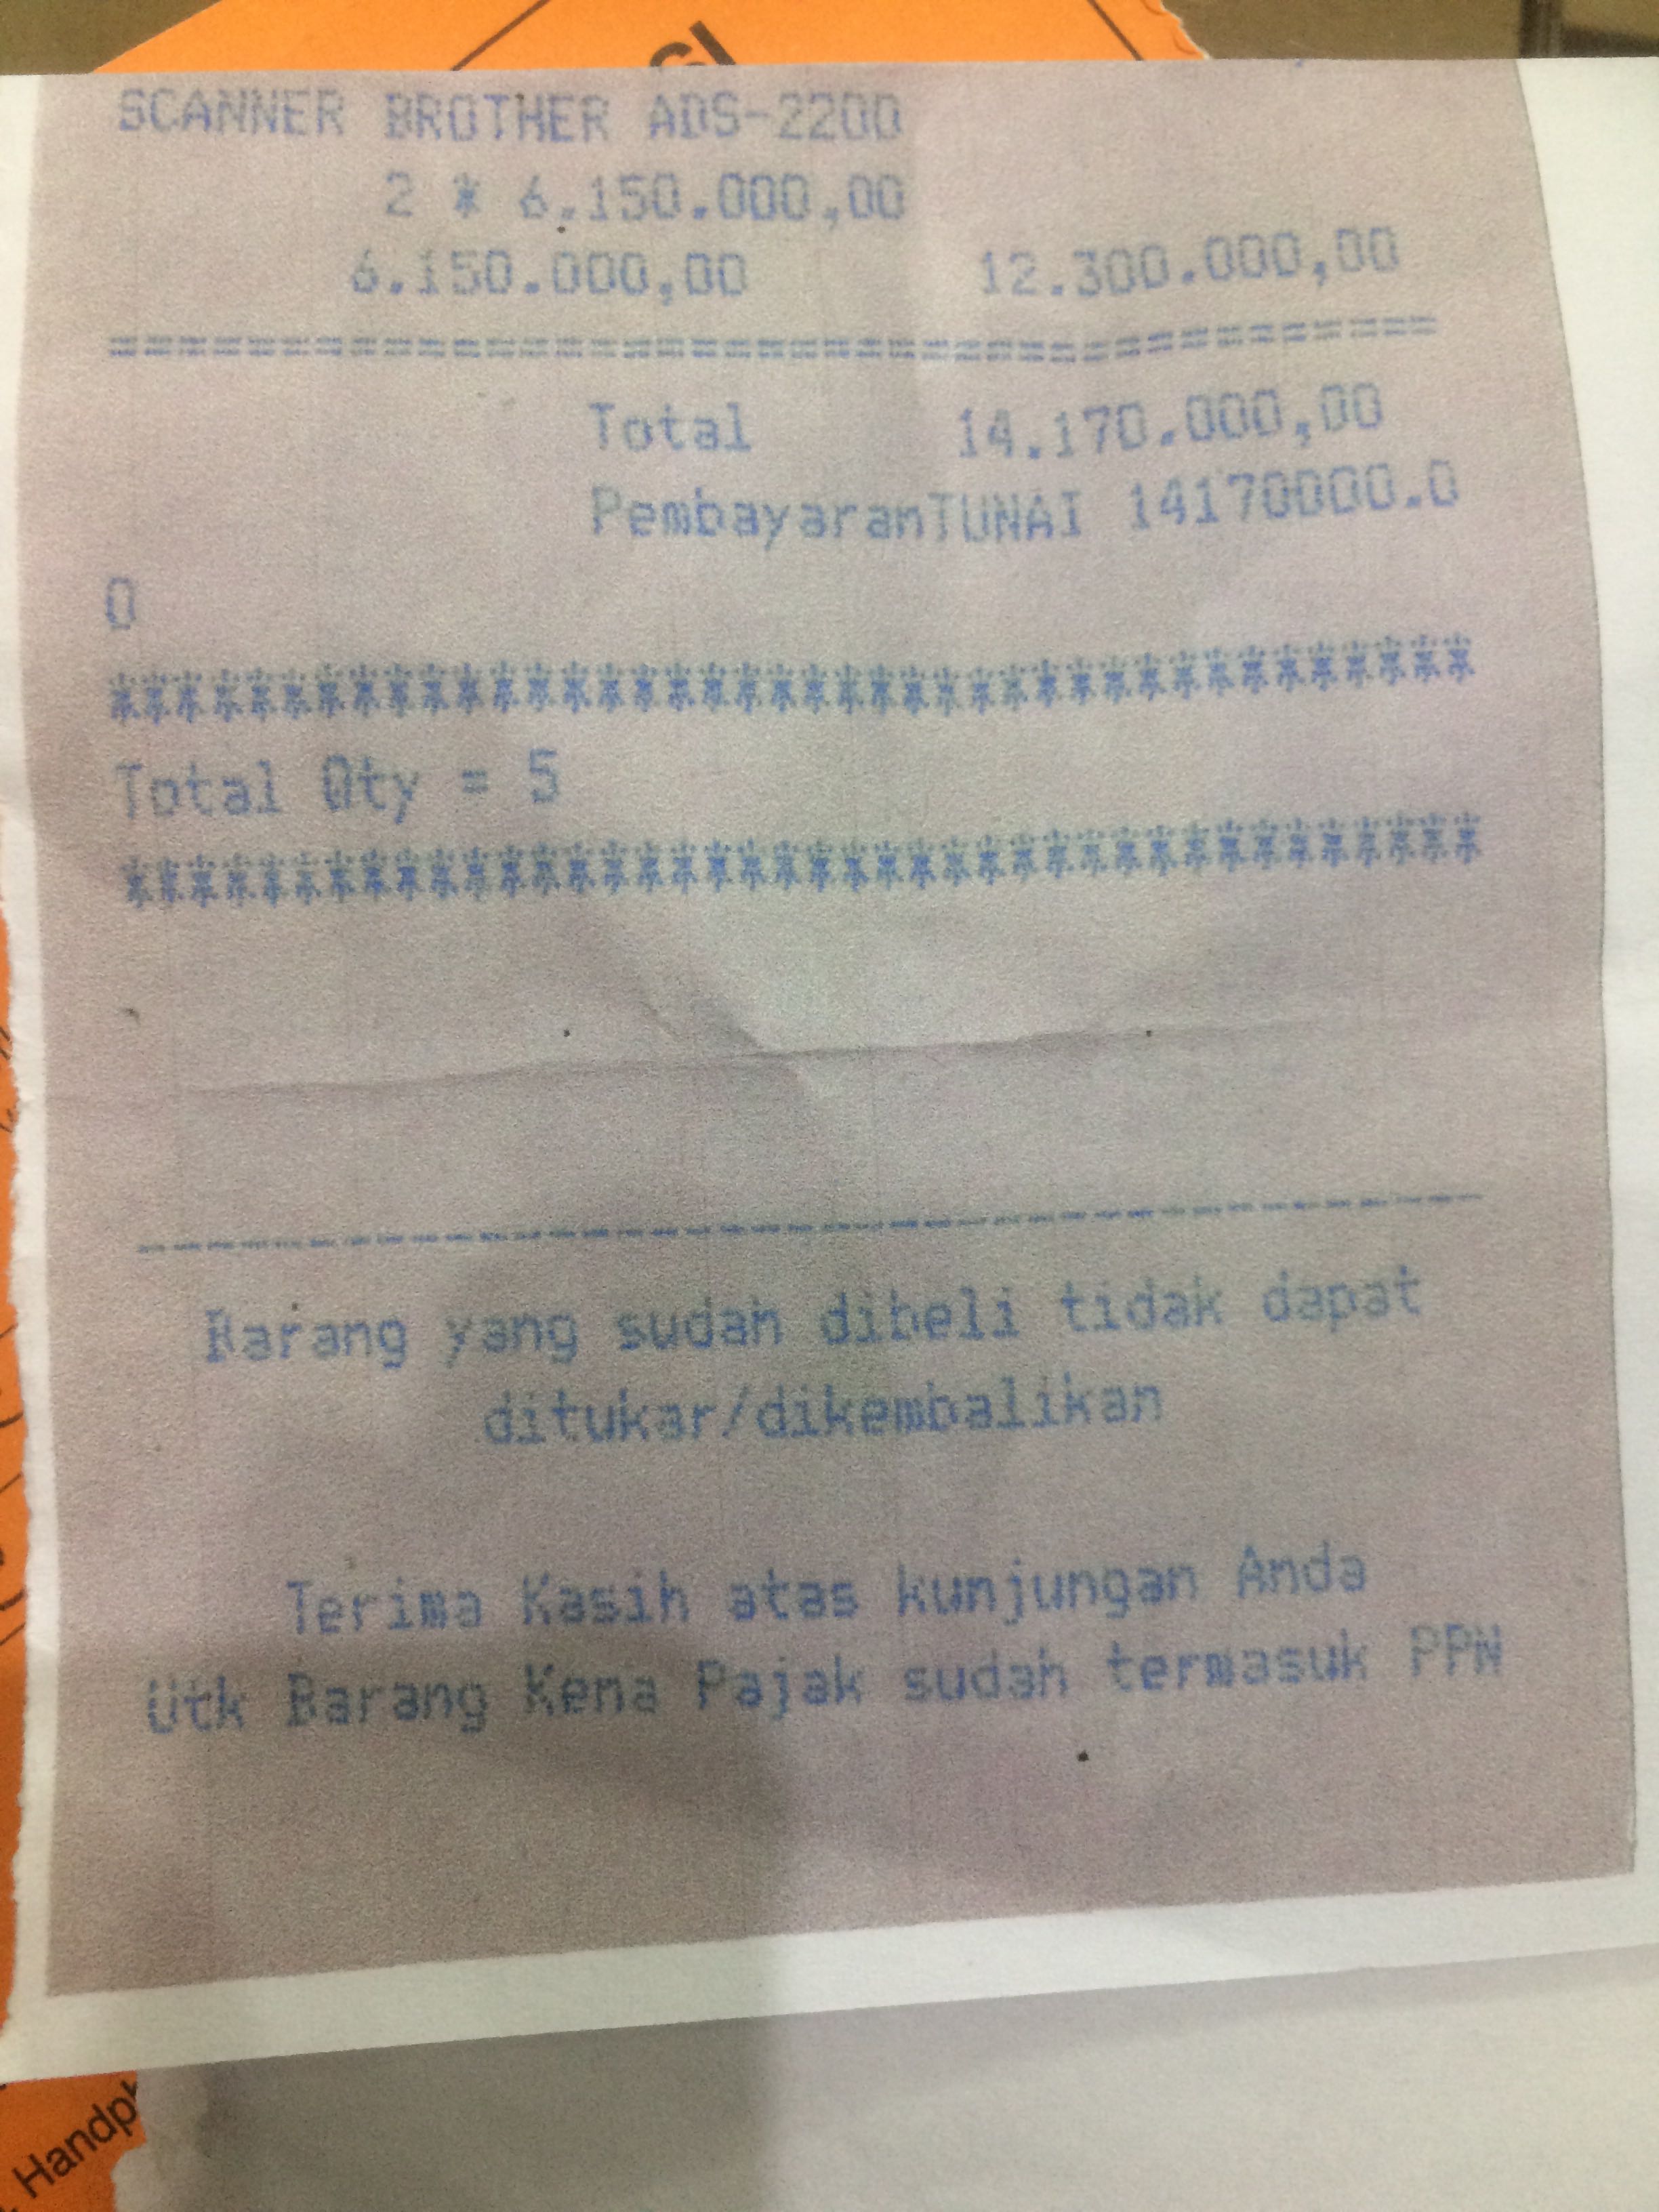 SCANNER BROTHER ADS-2200
2 * 6.150.000,00
6.150.000,00 12.300.000,00
========================================
Total 14.170.000,00
PembayaranTUNAI 14170000.0
0
****************************************
Total Qty = 5
****************************************
----------------------------------------
Barang yang sudah dibeli tidak dapat
ditukar/dikembalikan
Terima Kasih atas kunjungan Anda
Utk Barang Kena Pajak sudah termasuk PPN